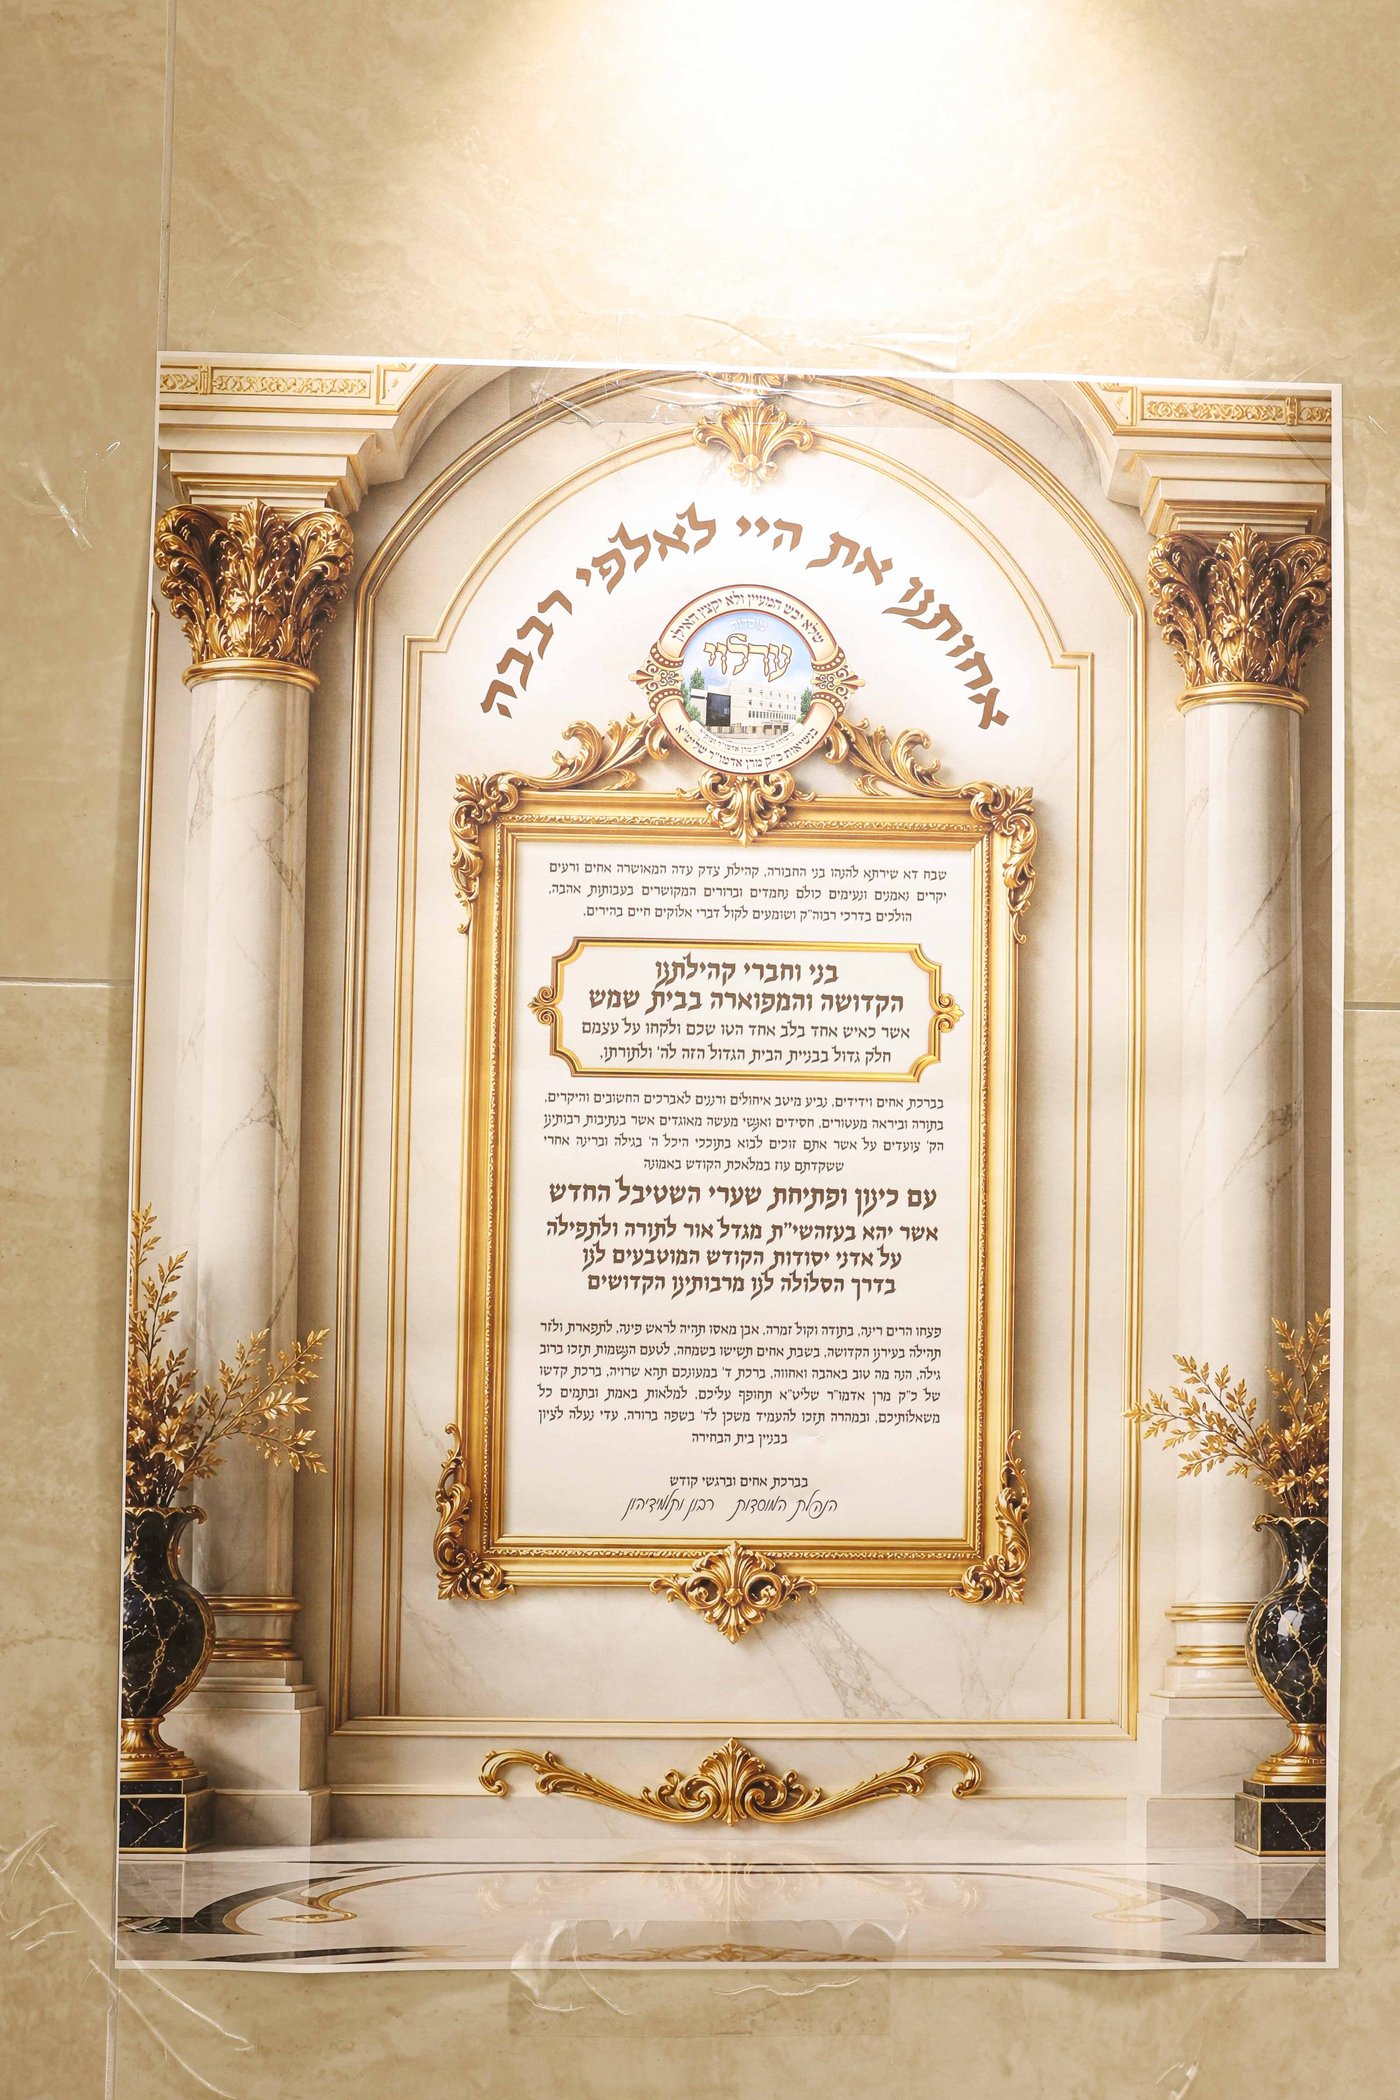 אחותנו את היי לאלפי רבבה
שלא יבש המעיין ולא יקצץ האילן
מוסדות
ערלוי
בנשיאות כ"ק מרן אדמו"ר שליט"א
שבח דא שירתא להנהו בני החבורה, קהילת צדק עדה המאושרה אחים ורעים
יקרים נאמנים ונעימים כולם נחמדים וברורים המקושרים בעבותות אהבה,
הולכים בדרכי רבוה"ק ושומעים לקול דברי אלוקים חיים בהירים,
בני וחברי קהילתנו
הקדושה והמפוארה בבית שמש
אשר כאיש אחד בלב אחד הטו שכם ולקחו על עצמם
חלק גדול בבניית הבית הגדול הזה לה' ולתורתו,
בברכת אחים וידידים, נביע מיטב איחולים ורננים לאברכים החשובים והיקרים,
בתורה וביראה מעטורים, חסידים ואנשי מעשה מאוגדים אשר בנתיבות רבותינו
הק' צועדים על אשר אתם זוכים לבוא בתוככי היכל ה' בגילה וברינה אחרי
ששקדתם עוז במלאכת הקודש באמונה
עם כינון ופתיחת שערי השטיבל החדש
אשר יהא בעזהשי"ת מגדל אור לתורה ולתפילה
על אדני יסודות הקודש המוטבעים לנו
בדרך הסלולה לנו מרבותינו הקדושים
פצחו הרים רינה, בתודה וקול זמרה, אבן מאסו תהיה לראש פינה, לתפארת ולזר
תהילה בעירנו הקדושה, בשבת אחים תשישו בשמחה, לטעם הנשמות תזכו ברוב
גילה, הנה מה טוב באהבה ואחווה, ברכת ד' במעונכם תהא שרויה, ברכת קדשו
של כ"ק מרן אדמו"ר שליט"א תחופף עליכם, למלאות באמת ובתמים כל
משאלותיכם, ובמהרה תזכו להעמיד משכן לד' בשפה ברורה, עדי נעלה לציון
בבנין בית הבחירה
בברכת אחים וברגשי קודש
הנהלת המוסדות רבנן ותלמידיהון